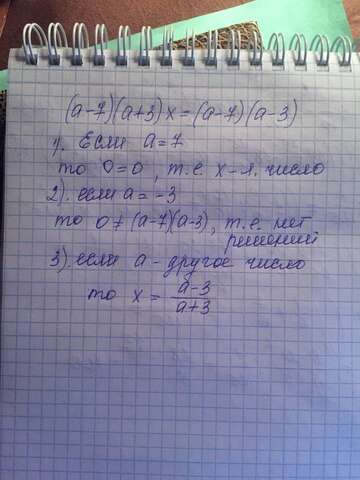 (a-7)(a+3)x=(a-7)(a-3)
1). Если a=7
то 0=0, т.е. x-л. число
2). если a=-3
то 0≠(a-7)(a-3), т.е. нет
решений
3) если a-другое число
то x = \frac{a-3}{a+3}